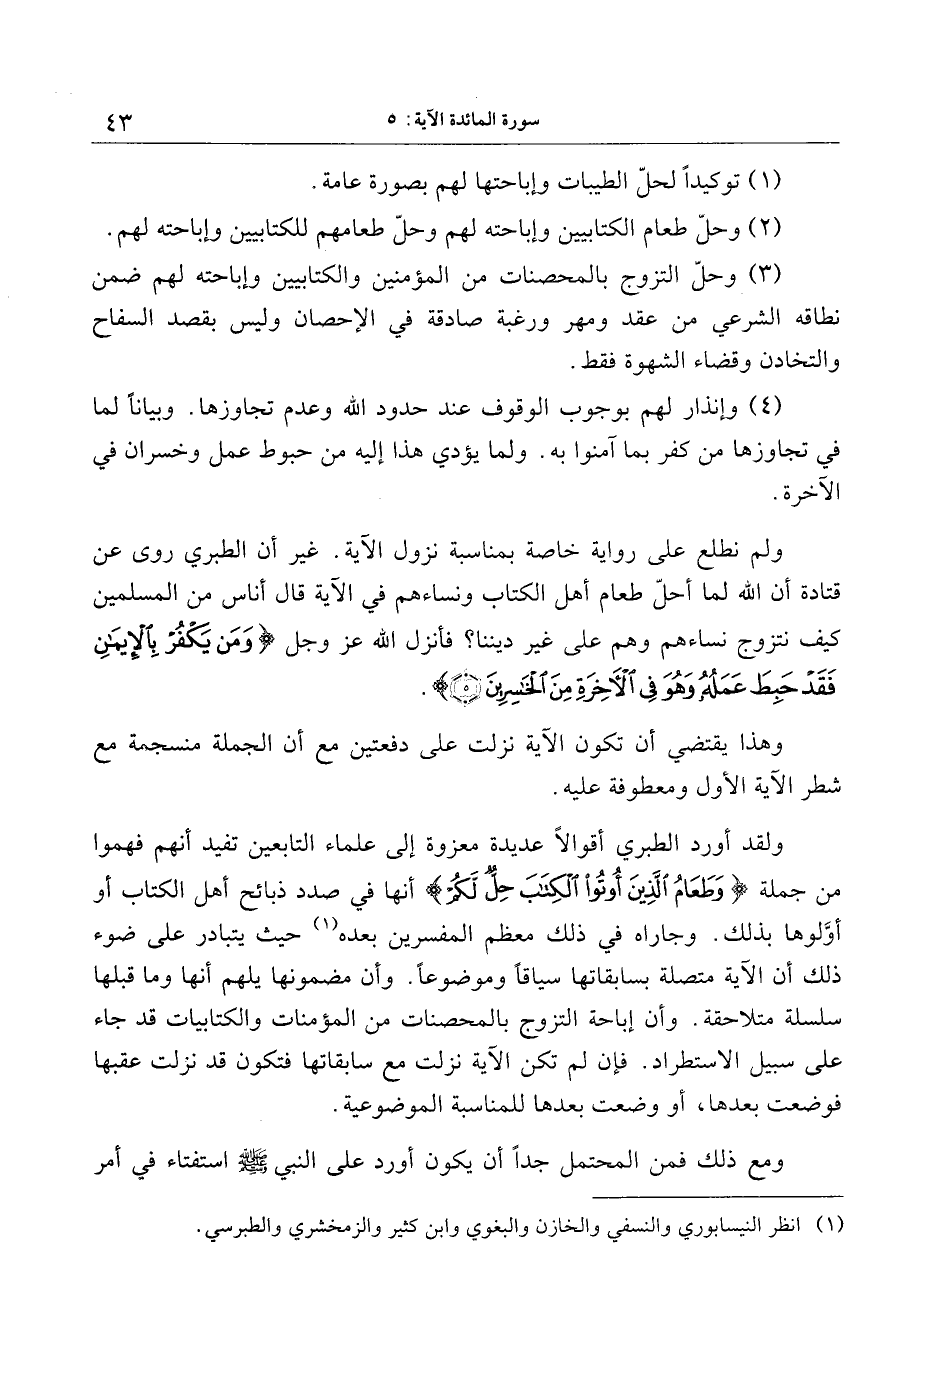 سورة المائدة الآية: ٥ ٤٣
(١) توكيداً لحلّ الطيبات وإباحتها لهم بصورة عامة.
(٢) وحلّ طعام الكتابيين وإباحته لهم وحلّ طعامهم للكتابيين وإباحته لهم.
(٣) وحلّ التزوج بالمحصنات من المؤمنين والكتابيين وإباحته لهم ضمن
نطاقه الشرعي من عقد ومهر ورغبة صادقة في الإحصان وليس بقصد السفاح
والتخادن وقضاء الشهوة فقط.
(٤) وإنذار لهم بوجوب الوقوف عند حدود الله وعدم تجاوزها. وبياناً لما
في تجاوزها من كفر بما آمنوا به. ولما يؤدي هذا إليه من حبوط عمل وخسران في
الآخرة.
ولم نطلع على رواية خاصة بمناسبة نزول الآية. غير أن الطبري روى عن
قتادة أن الله لما أحلّ طعام أهل الكتاب ونساءهم في الآية قال أناس من المسلمين
كيف نتزوج نساءهم وهم على غير ديننا؟ فأنزل الله عز وجل ﴿وَمَن يَكْفُرْ بِٱلْإِيمَٰنِ
فَقَدْ حَبِطَ عَمَلُهُۥ وَهُوَ فِى ٱلْأَخِرَةِ مِنَ ٱلْخَٰسِرِينَ ۝٥﴾.
وهذا يقتضي أن تكون الآية نزلت على دفعتين مع أن الجملة منسجمة مع
شطر الآية الأول ومعطوفة عليه.
ولقد أورد الطبري أقوالاً عديدة معزوة إلى علماء التابعين تفيد أنهم فهموا
من جملة ﴿وَطَعَامُ ٱلَّذِينَ أُوتُوا۟ ٱلْكِتَٰبَ حِلٌّ لَّكُمْ﴾ أنها في صدد ذبائح أهل الكتاب أو
أوَّلوها بذلك. وجاراه في ذلك معظم المفسرين بعده(١) حيث يتبادر على ضوء
ذلك أن الآية متصلة بسابقاتها سياقاً وموضوعاً. وأن مضمونها يلهم أنها وما قبلها
سلسلة متلاحقة. وأن إباحة التزوج بالمحصنات من المؤمنات والكتابيات قد جاء
على سبيل الاستطراد. فإن لم تكن الآية نزلت مع سابقاتها فتكون قد نزلت عقبها
فوضعت بعدها، أو وضعت بعدها للمناسبة الموضوعية.
ومع ذلك فمن المحتمل جداً أن يكون أورد على النبي ﷺ استفتاء في أمر
(١) انظر النيسابوري والنسفي والخازن والبغوي وابن كثير والزمخشري والطبرسي.